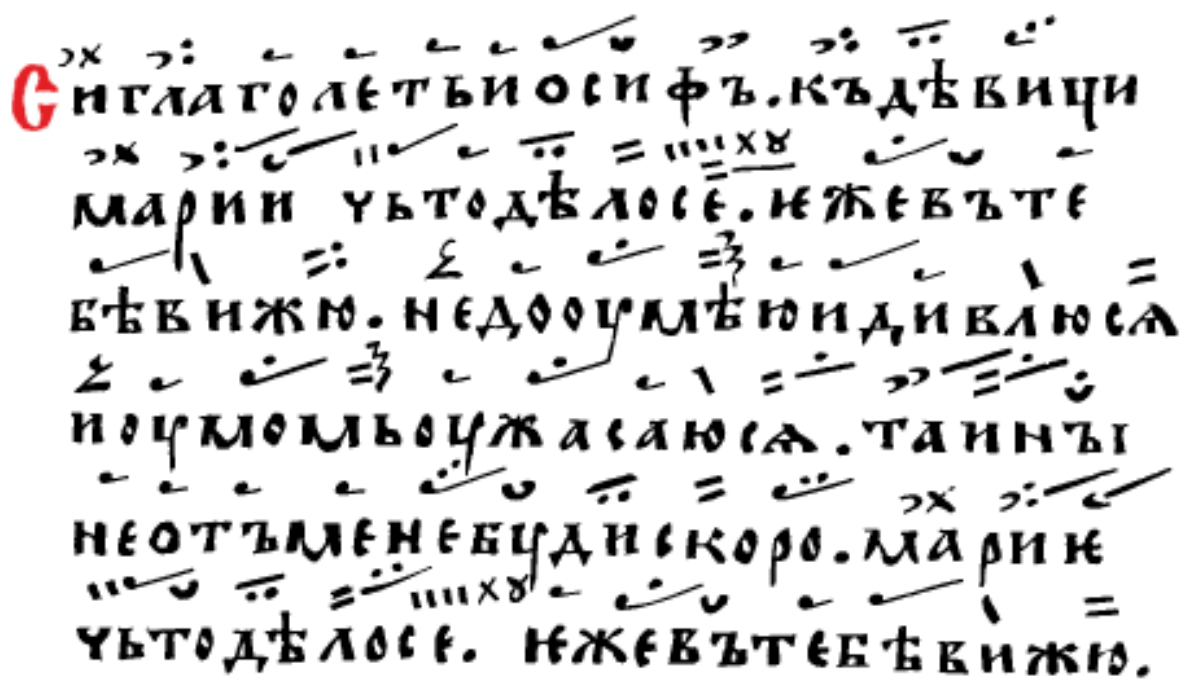 Си глаголеть иосифъ. къ дѣвици
марии чьто дѣло се. ѥже въ те
бѣ вижю. не дооумѣю и дивлюсѧ
и оумомь оужасаюсѧ. таинꙑ
не отъ мене буди скоро. мариѥ
чьто дѣло се. ѥже въ тебѣ вижю.